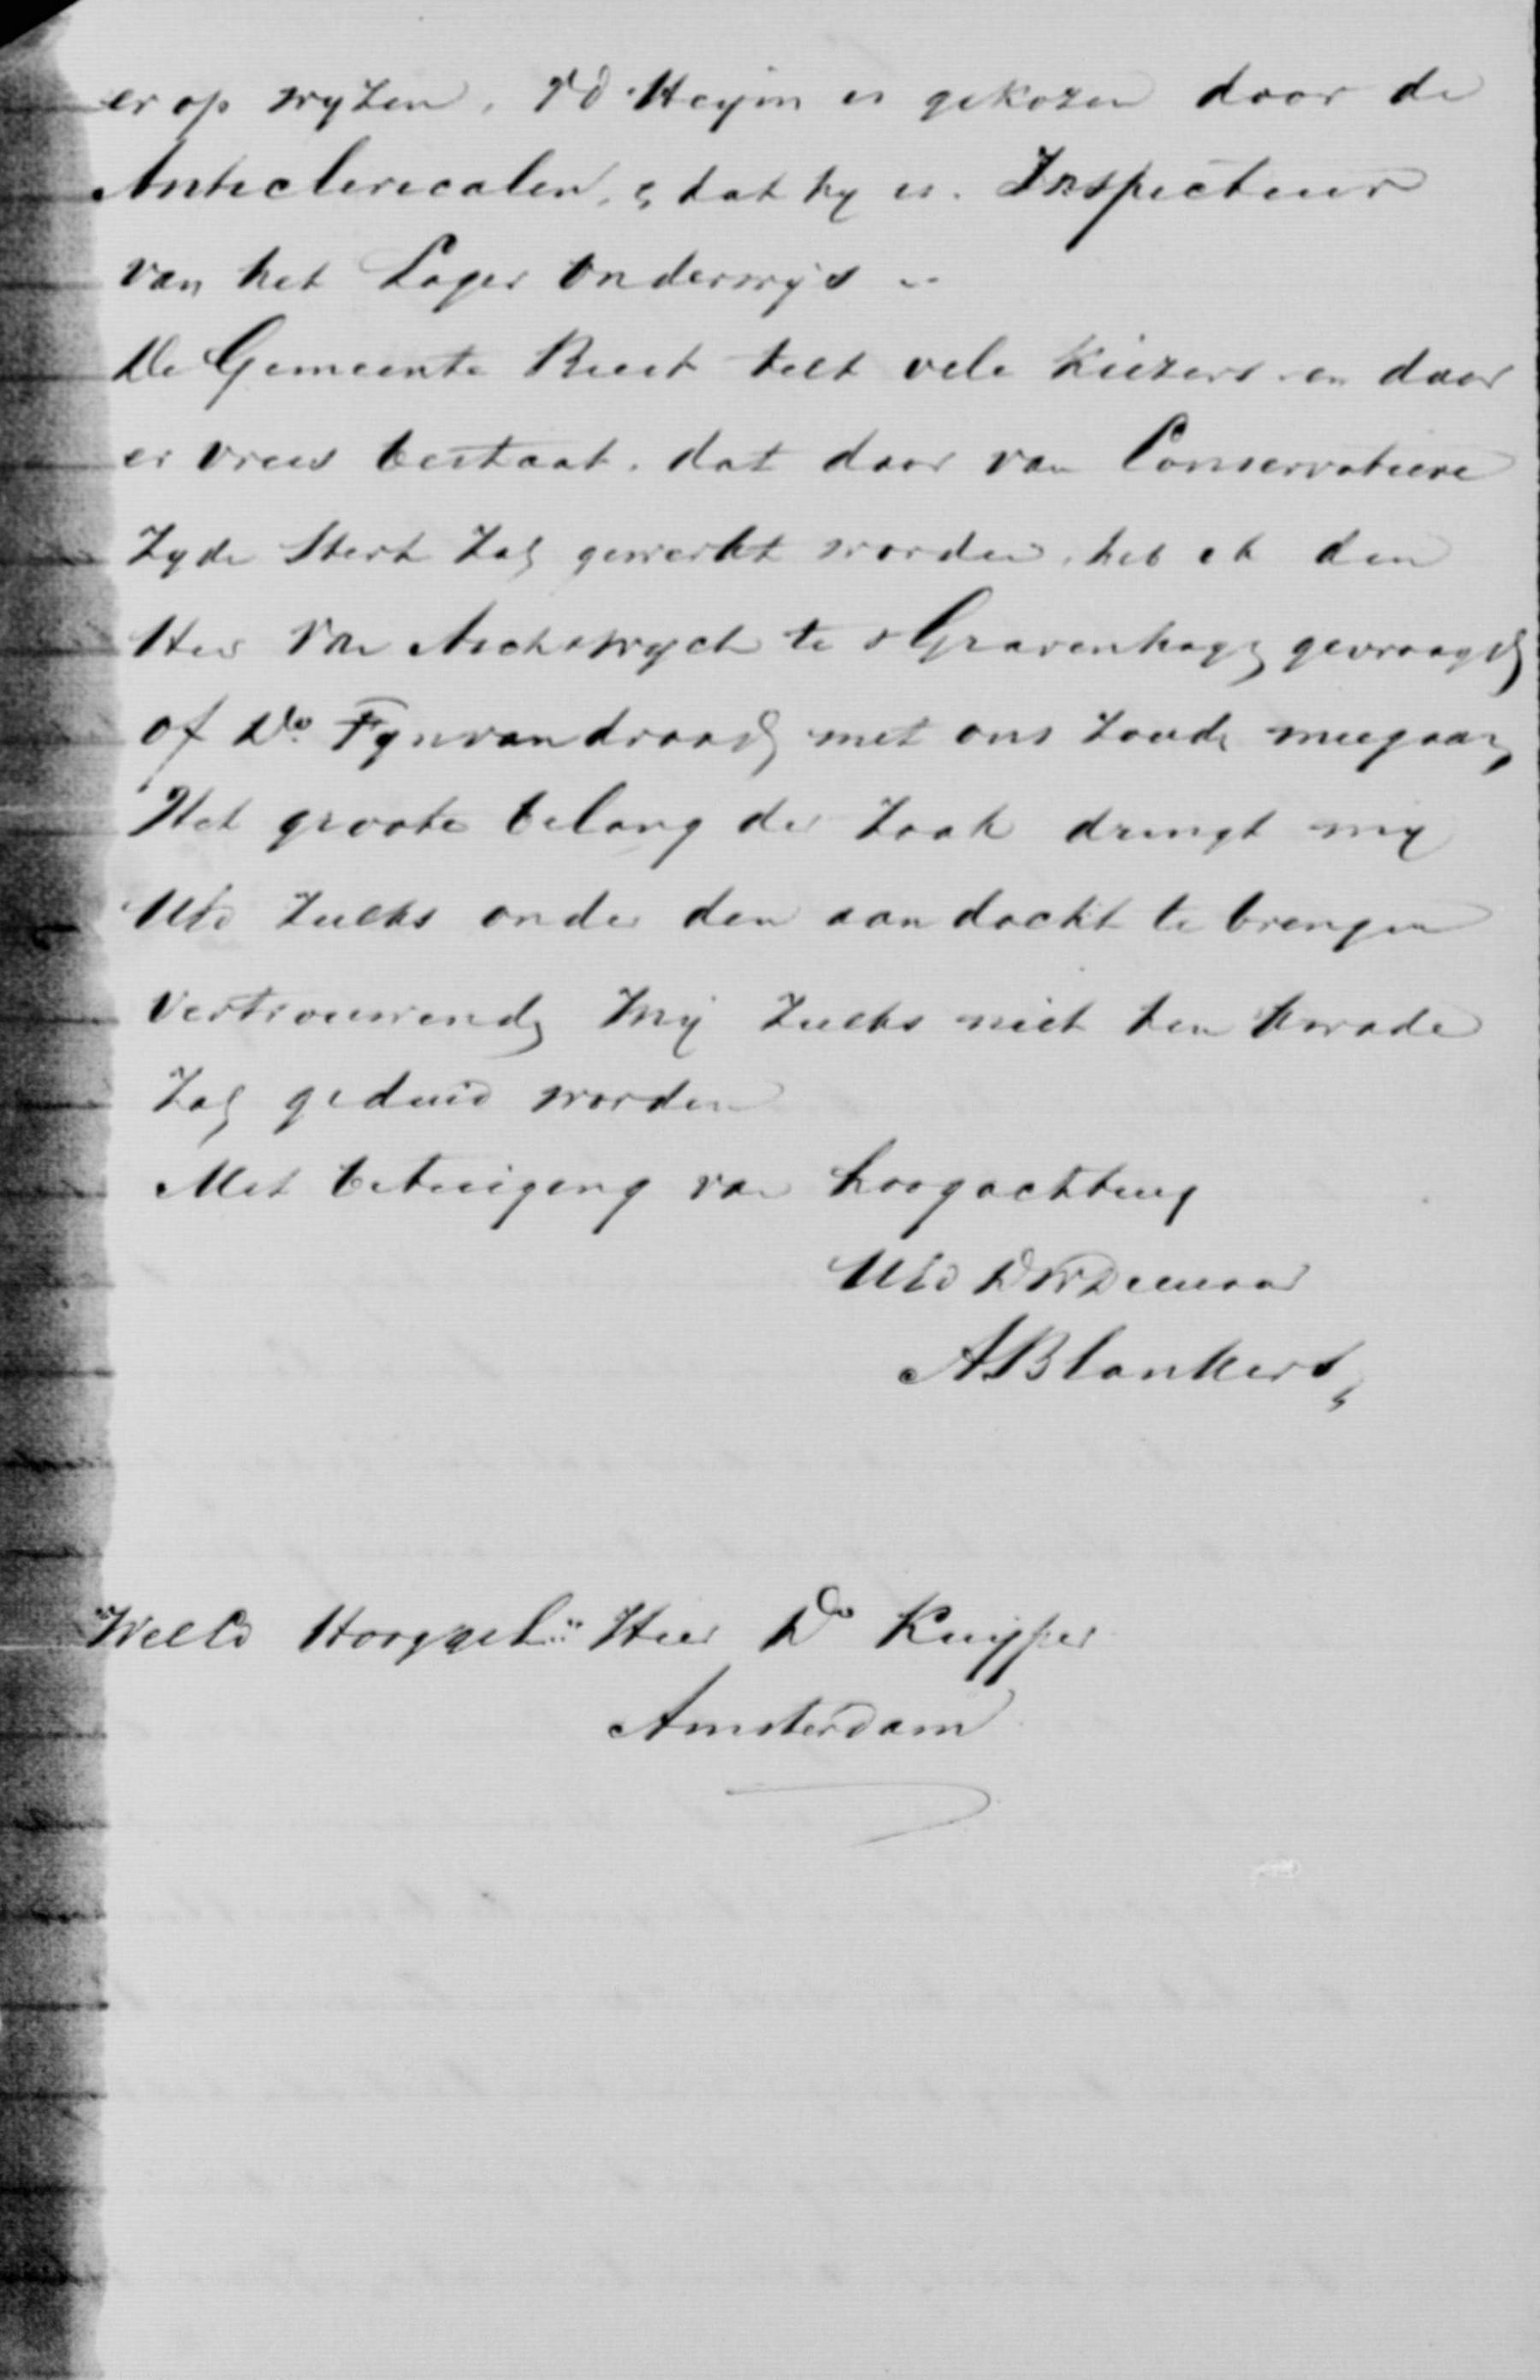 er op wyzen, Vd Heym is gekozen door de
Anticlericalen, & dat hy is. Inspecteur
van het Lager Onderwijs
De Gemeente Reest telt vele kiezers en daar
er vrees bestaat, dat daar van Conservatieve
Zyde Sterk Zal gewerkt worden, heb ik den
Heer Van te s Gravenhage gevraagd
of Ds. Fynvandraad met ons Zoude meegaan
Het groote belang der Zaak dringt my
UEd Zulks onder den aandacht te brengen
vertrouwend Mij Zulks niet ten kwade
Zal geduid worden
Met betuiging van hoogachting
UEd DW Dienaar
A Blankert
WelEd Hooggel. Heer Dr Kuyper
Amsterdam